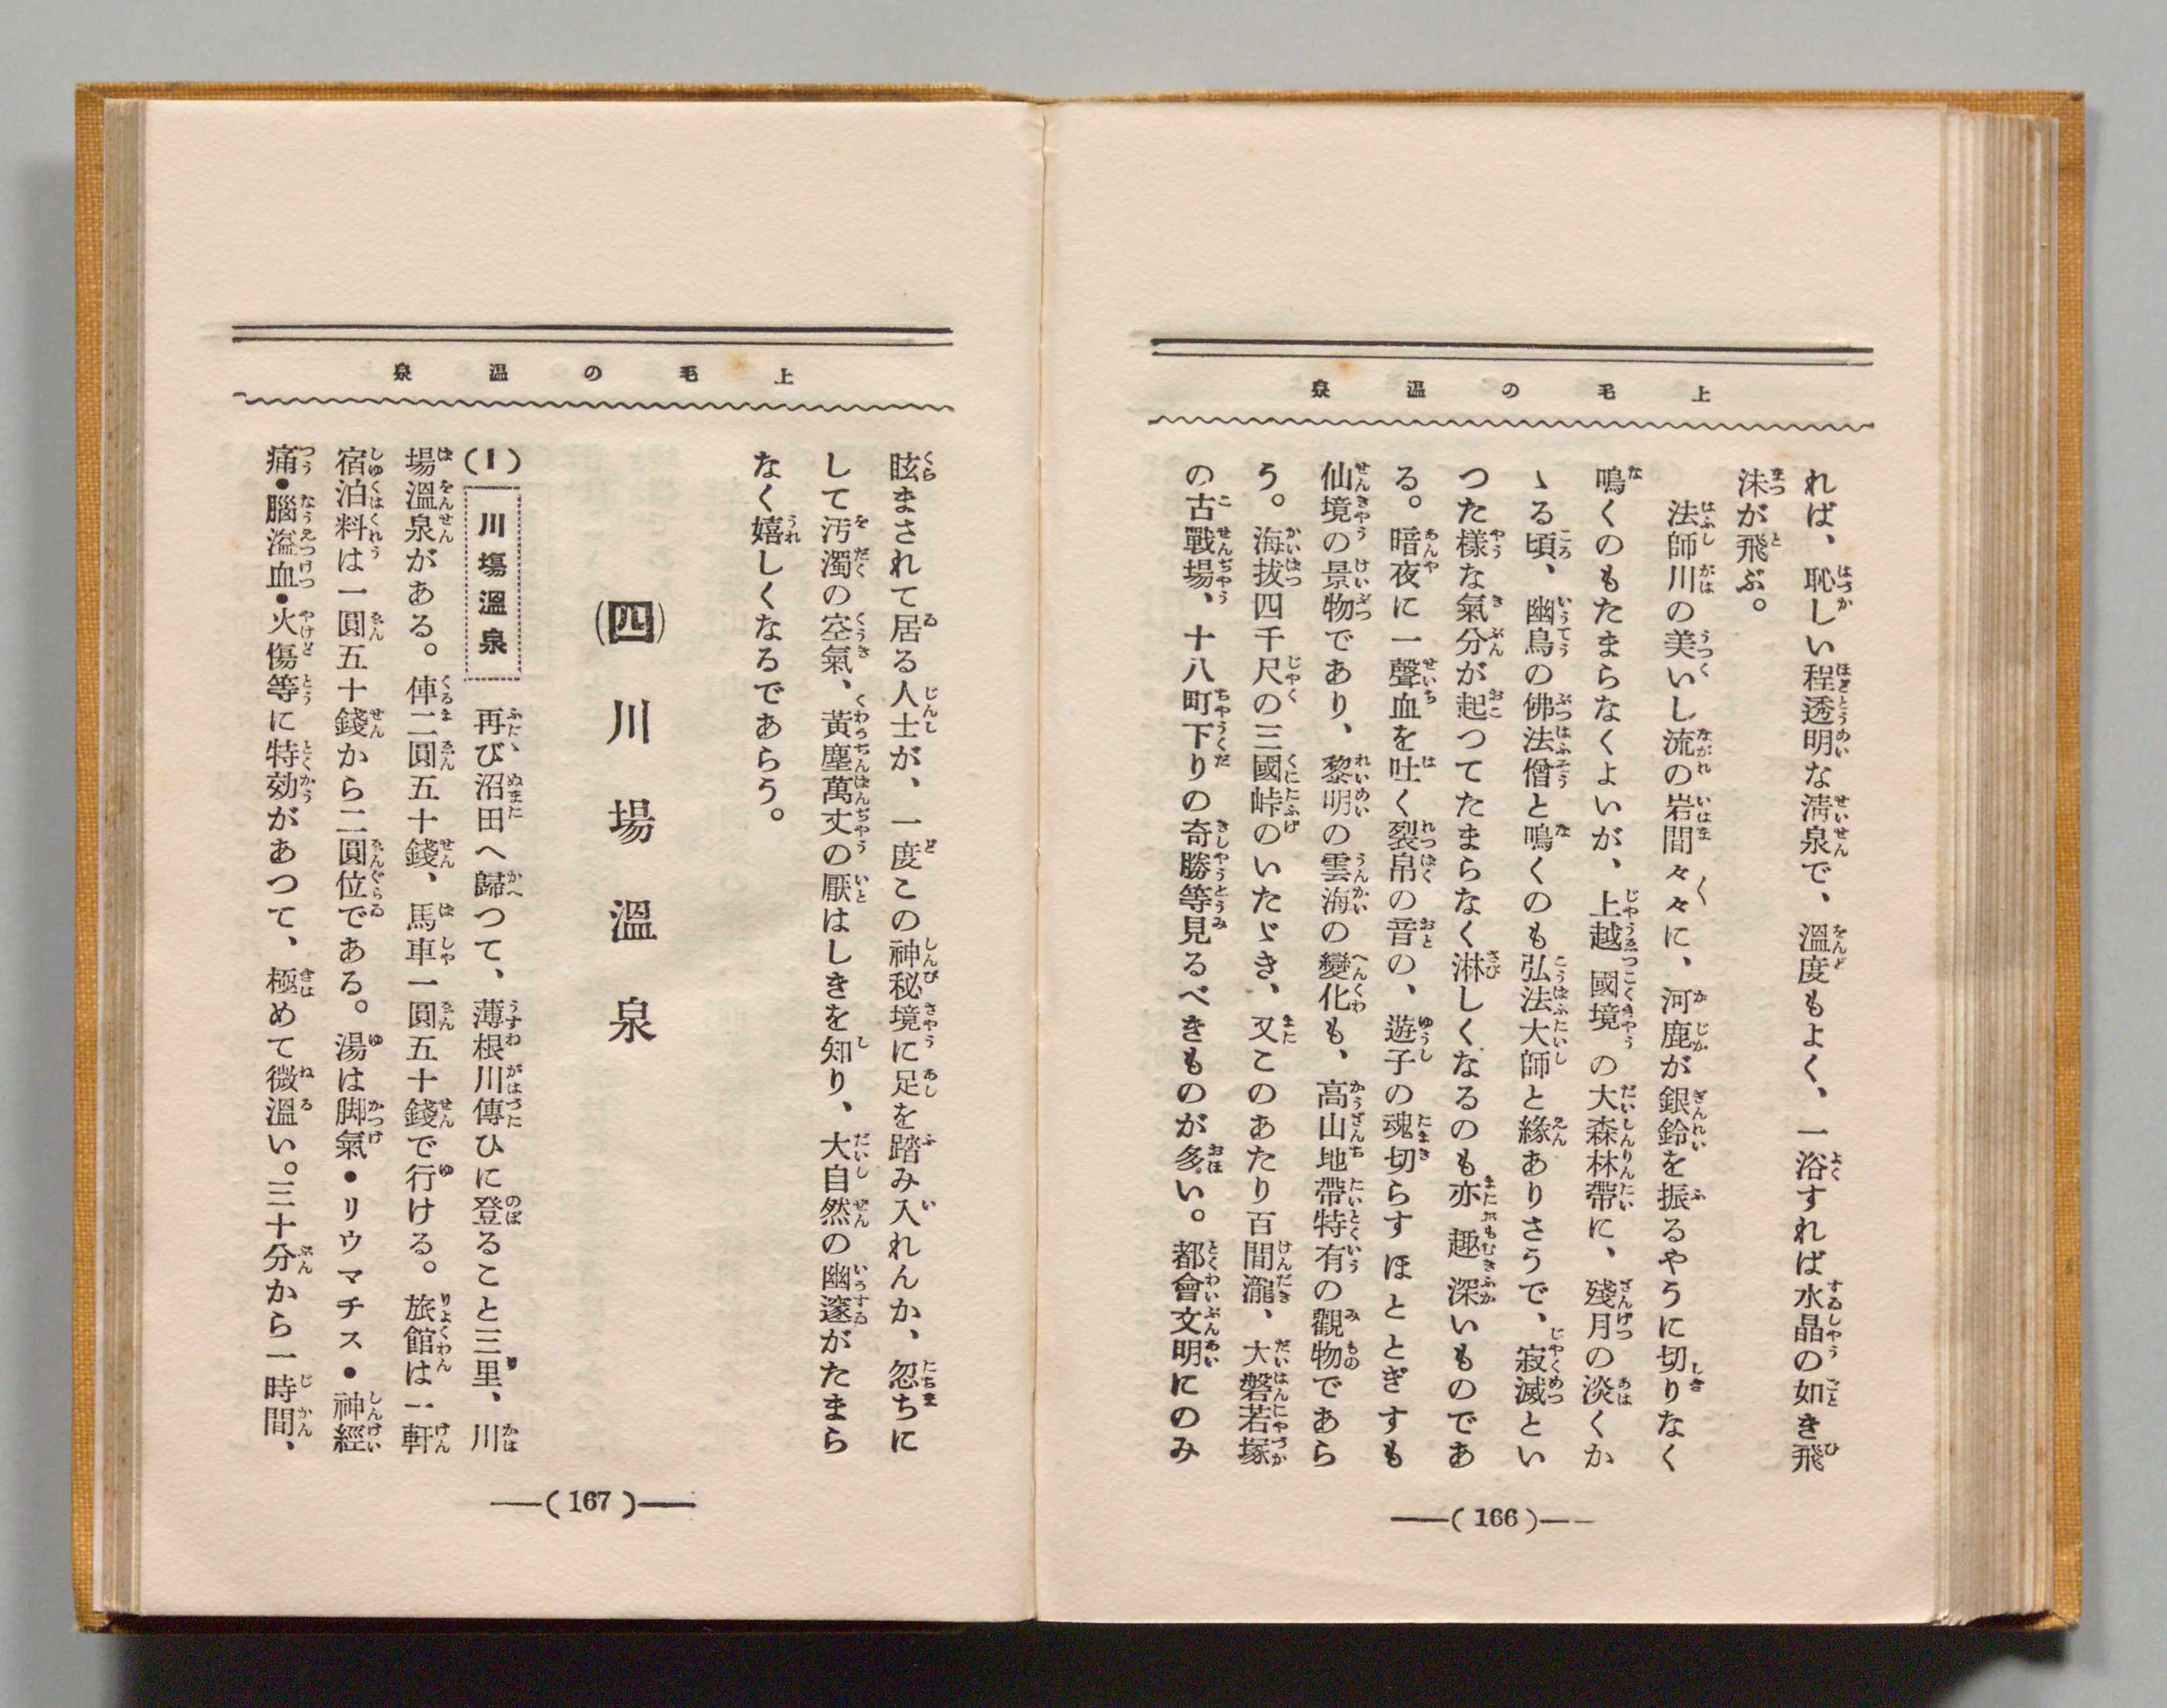 上毛の溫泉
れば、恥しい程透明な淸泉で、溫度もよく、一浴すれば水晶の如き飛
沫が飛ぶ。
法師川の美いし流の岩間々々に、河鹿が銀鈴を振るやうに切りなく
鳴くのもたまらなくよいが、上越國境の大森林帶に、殘月の淡くか
ゝる頃、幽鳥の佛法僧と鳴くのも弘法大師と緣ありさうで、寂滅とい
つた樣な氣分が起つてたまらなく淋しくなるのも亦趣深いものであ
る。暗夜に一聲血を吐く裂帛の音の、遊子の魂切らすほととぎすも
仙境の景物であり、黎明の雲海の變化も、高山地帶特有の觀物であら
う。海拔四千尺の三國峠のいたゞき、又このあたり百間瀧、大磐若塚
の古戰場、十八町下りの奇勝等見るべきものが多い。都會文明にのみ
(166)
上毛の溫泉
眩まされて居る人士が、一度この神秘境に足を踏み入れんか、忽ちに
して汚濁の空氣、黃塵萬丈の厭はしきを知り、大自然の幽邃がたまら
なく嬉しくなるであらう。
(四)川場溫泉
(1)川塲溫泉 再び沼田へ歸つて、薄根川傳ひに登ること三里、川
場溫泉がある。俥二圓五十錢、馬車一圓五十錢で行ける。旅館は一軒
宿泊料は一圓五十錢から二圓位である。湯は脚氣・リウマチス・神經
痛・腦溢血・火傷等に特効があつて、極めて微溫い。三十分から一時間、
(167)